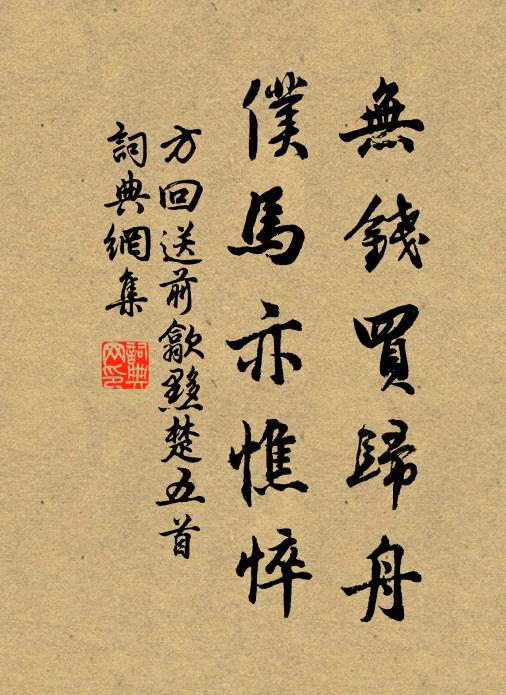 無錢買歸舟
僕馬亦憔悴
方回送前歙黟楚五首
詞典網集
詞典网印